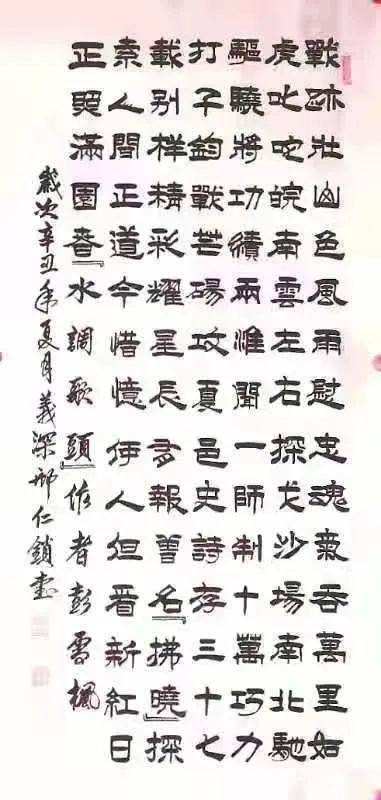 戰跡壯山色風雨慰忠魂氣吞萬里如
虎叱咤皖南雲左右探戈沙場南北馳
驅驍將功績兩淮聞一師制十萬巧力
打千鈞戰芒碭攻夏邑史詩存三十七
載别樣精彩耀星辰多報善名拂曉探
索人間正道今惜憶伊人但看新紅日
正照滿園春水調歌頭作者彭雪楓
歲次辛丑年夏月義深邢仁鎖書